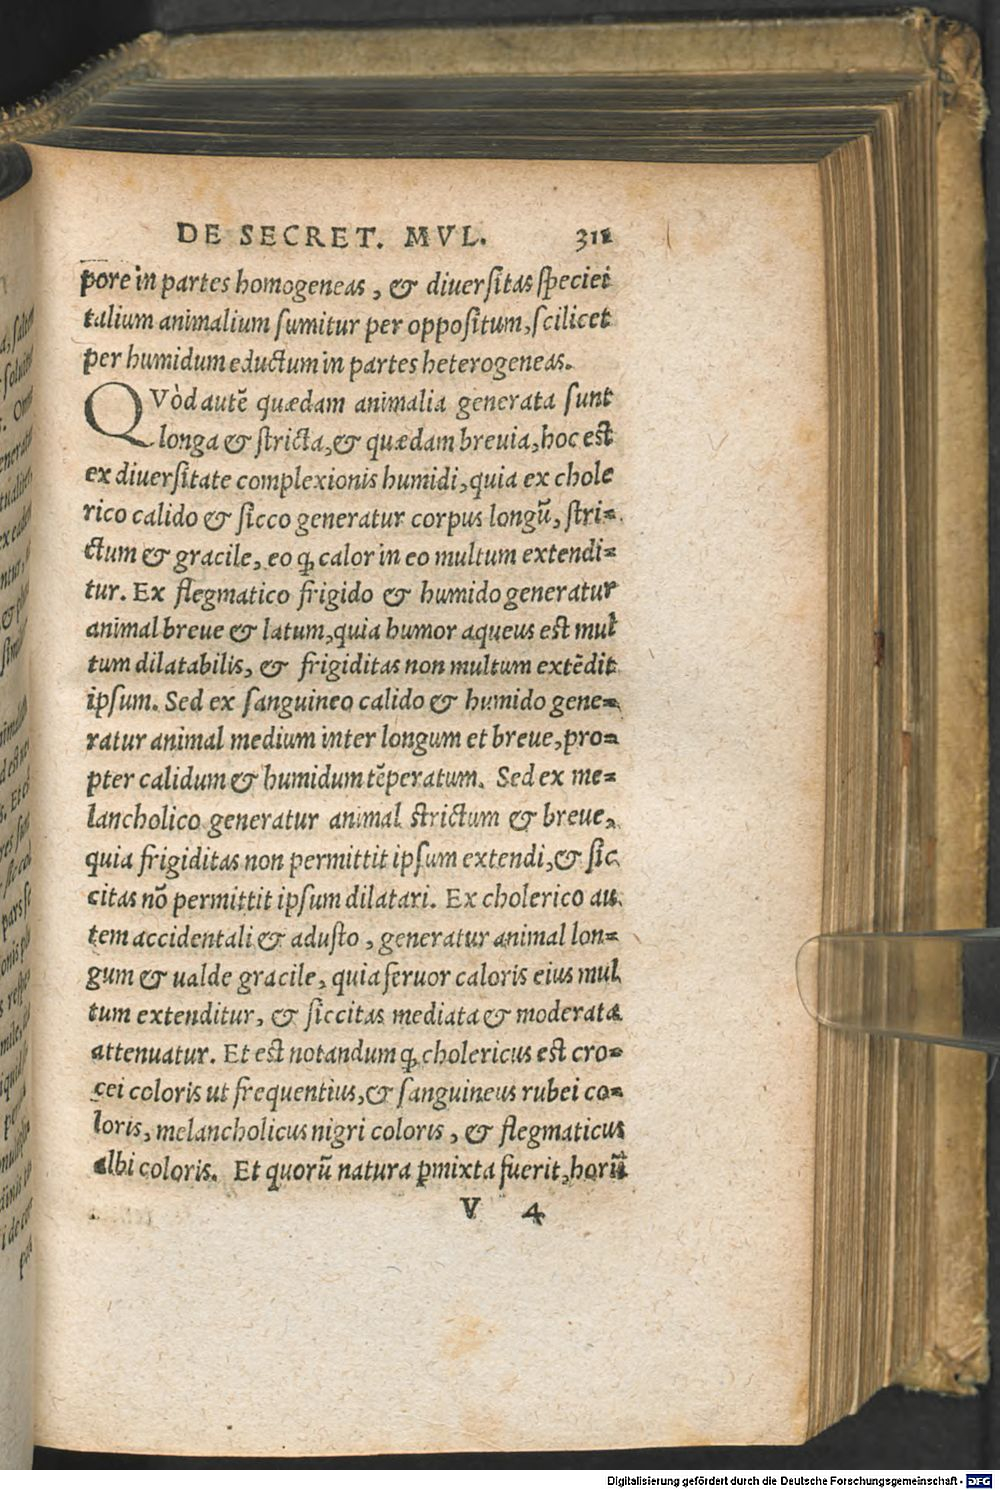 DE SECRET. MVL. 312
pore in partes homogeneas, & diuersitas speciei
talium animalium sumitur per oppositum, scilicet
per humidum eductum in partes heterogeneas.
QVòd autẽ quædam animalia generata sunt
longa & stricta, & quædam breuia, hoc est
ex diuersitate complexionis humidi, quia ex chole
rico calido & sicco generatur corpus longũ, stri=
ctum & gracile, eo ꝙ calor in eo multum extendi=
tur. Ex flegmatico frigido & humido generatur
animal breue & latum, quia humor aqueus est mul
tum dilatabilis, & frigiditas non multum extẽdit
ipsum. Sed ex sanguineo calido & humido gene=
ratur animal medium inter longum et breue, pro=
pter calidum & humidum tẽperatum. Sed ex me=
lancholico generatur animal strictum & breue,
quia frigiditas non permittit ipsum extendi, & sic
citas nõ permittit ipsum dilatari. Ex cholerico au
tem accidentali & adusto, generatur animal lon=
gum & ualde gracile, quia feruor caloris eius mul
tum extenditur, & siccitas mediata & moderata
attenuatur. Et est notandum ꝙ cholericus est cro=
cei coloris ut frequentius, & sanguineus rubei co=
loris, melancholicus nigri coloris, & flegmaticus
albi coloris. Et quorũ natura ꝑmixta fuerit, horũ
V 4
Digitalisierung gefördert durch die Deutsche Forschungsgemeinschaft - DFG